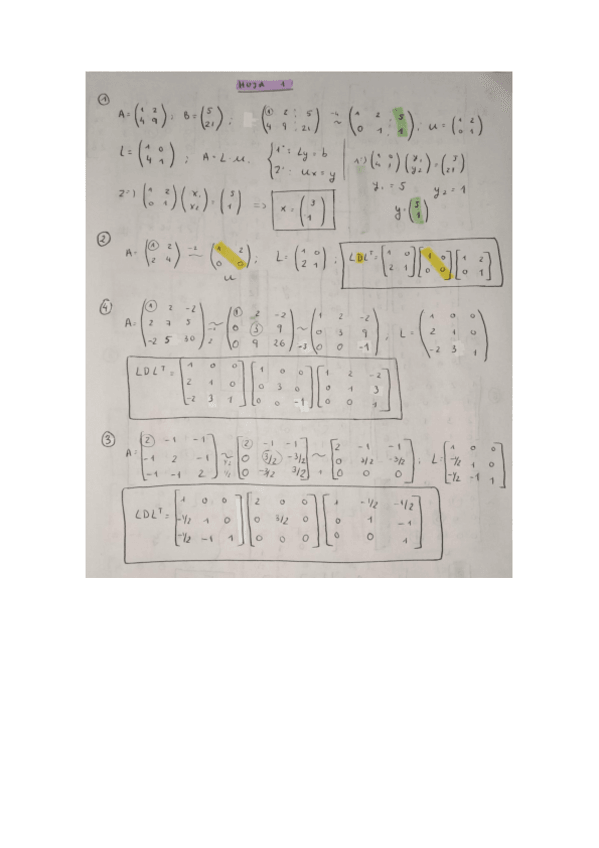 HOJA 1
① A = (1 2; 4 9) ; B = (5; 21) ; (1 2 : 5; 4 9 : 21) ~ (1 2 : 5; 0 1 : 1) ; U = (1 2; 0 1)
L = (1 0; 4 1) ; A = L · U. { 1º: Ly = b; 2º: Ux = y | 1º) (1 0; 4 1)(y₁; y₂) = (5; 21)
y₁ = 5 y₂ = 1
2º) (1 2; 0 1)(x₁; x₂) = (5; 1) => x = (3; 1) y = (5; 1)
② A = (1 2; 2 4) ~ (1 2; 0 0) ; L = (1 0; 2 1) ; LDLᵀ = [1 0; 2 1][1 0; 0 0][1 2; 0 1]
U
④ A = (1 2 -2; 2 7 5; -2 5 30) ~ (1 2 -2; 0 3 9; 0 9 26) ~ -3 (1 2 -2; 0 3 9; 0 0 -1) ; L = (1 0 0; 2 1 0; -2 3 1)
LDLᵀ = [1 0 0; 2 1 0; -2 3 1][1 0 0; 0 3 0; 0 0 -1][1 2 -2; 0 1 3; 0 0 1]
③ A = (2 -1 -1; -1 2 -1; -1 -1 2) ~ ½ ½ [2 -1 -1; 0 3/2 -3/2; 0 -3/2 3/2] ~ 1 [2 -1 -1; 0 3/2 -3/2; 0 0 0] , L = [1 0 0; -1/2 1 0; -1/2 -1 1]
LDLᵀ = [1 0 0; -1/2 1 0; -1/2 -1 1][2 0 0; 0 3/2 0; 0 0 0][1 -1/2 -1/2; 0 1 -1; 0 0 1]